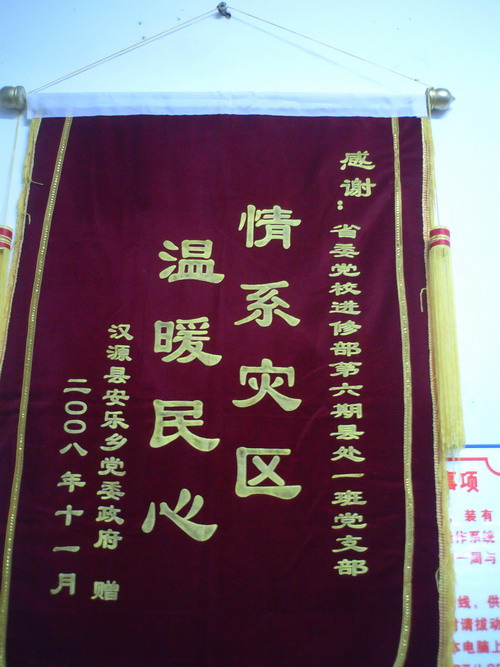 感谢：省委党校进修部第六期县处一班党支部
情系灾区
温暖民心
汉源县安乐乡党委政府 赠
二〇〇八年十一月
事项
装有
作系统
一周与
线，供
时请拔动
本电脑上